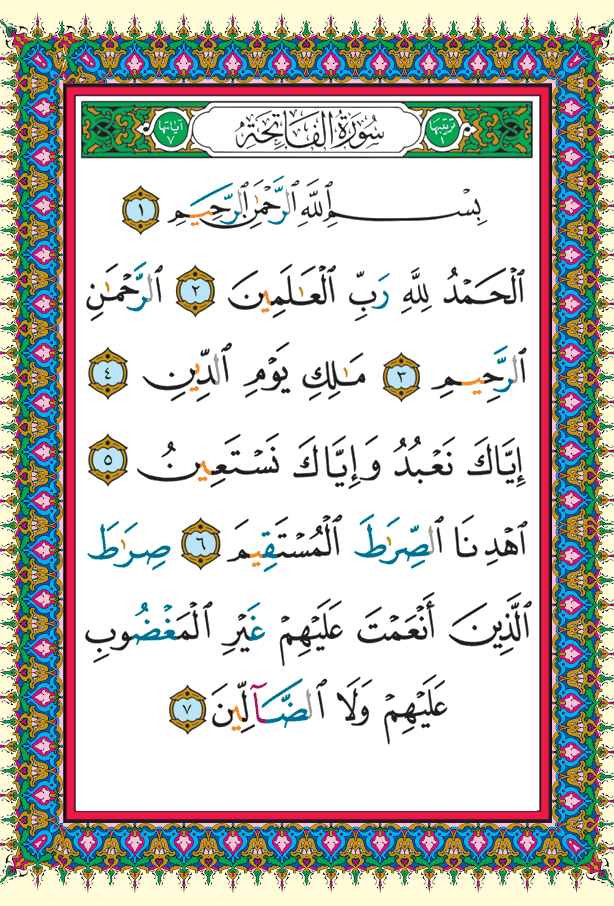 ترتيبها ١ سُورَةُ الفَاتِحَةِ آياتها ٧
بِسْمِ ٱللَّهِ ٱلرَّحْمَٰنِ ٱلرَّحِيمِ ١
ٱلْحَمْدُ لِلَّهِ رَبِّ ٱلْعَٰلَمِينَ ٢ ٱلرَّحْمَٰنِ
ٱلرَّحِيمِ ٣ مَٰلِكِ يَوْمِ ٱلدِّينِ ٤
إِيَّاكَ نَعْبُدُ وَإِيَّاكَ نَسْتَعِينُ ٥
ٱهْدِنَا ٱلصِّرَٰطَ ٱلْمُسْتَقِيمَ ٦ صِرَٰطَ
ٱلَّذِينَ أَنْعَمْتَ عَلَيْهِمْ غَيْرِ ٱلْمَغْضُوبِ
عَلَيْهِمْ وَلَا ٱلضَّآلِّينَ ٧